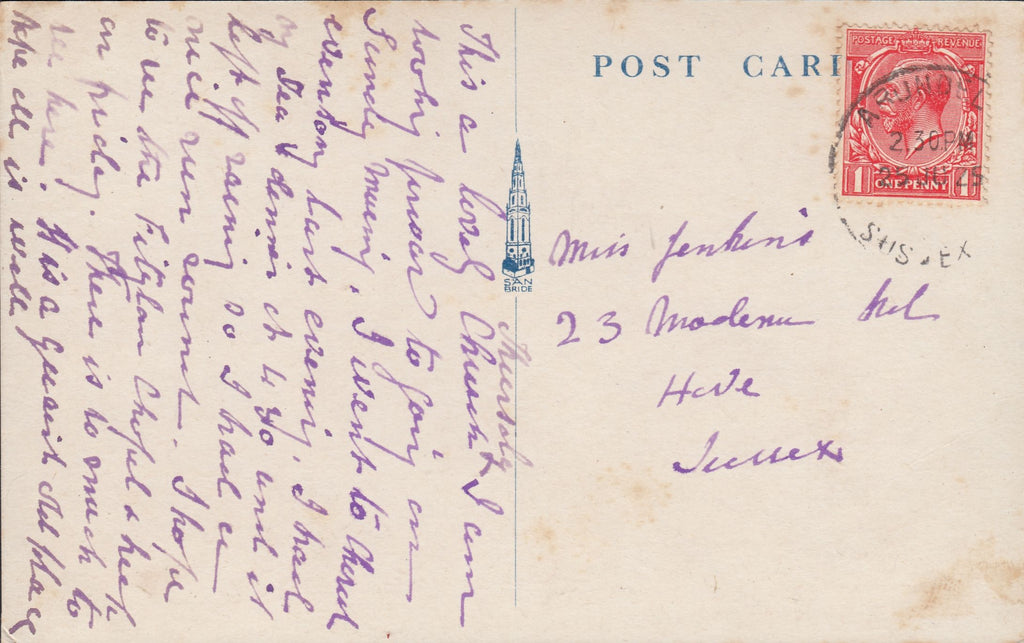 POST CAR
POSTAGE REVENUE
ARUNDEL
2.30 PM
25 JU 25
SUSSEX
1 ONE PENNY 1
SAN
BRIDE
Miss Jenkins
23 Modena Rd
Hove
Sussex
Thursday
This a lovely Church & I am
looking forward to going on
Sunday morning. I went to
evensong last evening. I had
my Tea & dinner at 4.30 and it
left off raining so I had a
nice run round. I hope
to see the Fitzlan Chapel &
on friday. There is to much to
see here. It is a quaint old place
hope all is well